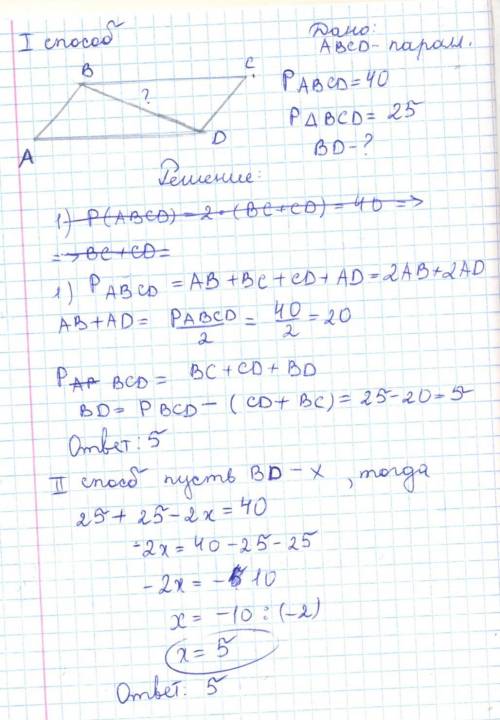 I способ
Дано:
ABCD - парал.
B
C
?
A
D
P ABCD = 40
P Δ BCD = 25
BD - ?
Решение:
1) P(ABCD) = 2 · (BC + CD) = 40 =>
=> BC + CD =
1) P ABCD = AB + BC + CD + AD = 2AB + 2AD
AB + AD = P ABCD / 2 = 40 / 2 = 20
P BCD = BC + CD + BD
BD = P BCD - (CD + BC) = 25 - 20 = 5
Ответ: 5
II способ пусть BD - x, тогда
25 + 25 - 2x = 40
-2x = 40 - 25 - 25
-2x = - 10
x = -10 : (-2)
x = 5
Ответ: 5